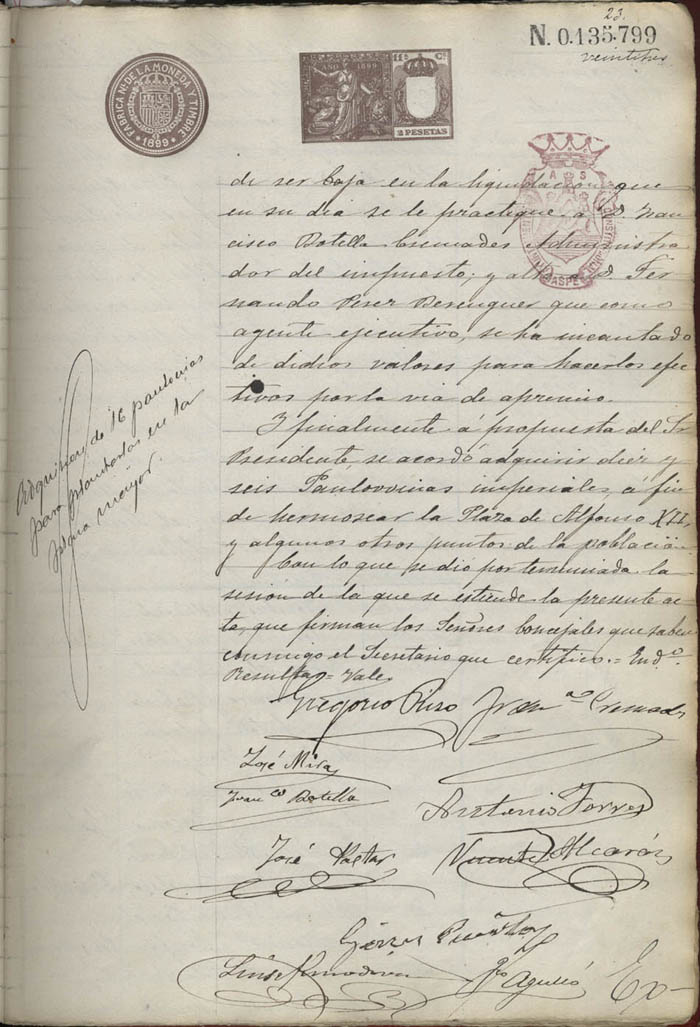 23.
N. 0.135.799
veintitres
FABRICA NL. DE LA MONEDA Y TIMBRE
1899
AÑO 1899
11ª Cª
2 PESETAS
de ser baja en la liquidacion que
en su dia se le practique a D. Fran
cisco Botella Cremades Administra
dor del impuesto; y alta a D. Fer
nando Perez Berenguer que como
agente ejecutivo, se ha incautado
de dichos valores para hacerlos efec
tivos por la via de apremio.
Y finalmente á propuesta del Sr.
Presidente, se acordó adquirir diez y
seis Paulovnias imperiales, á fin
de hermosear la Plaza de Alfonso XII,
y algunos otros puntos de la población
Con lo que se dio por terminada la
sesion de la que se estiende la presente ac
ta, que firman los Señores Concejales que saben
conmigo el Secretario que certifico.= End.º
Resultas= Vale.
Adquisicion de 16 paulonias
para plantarlas en la
plaza mayor.
Gregorio Rizo Fran.co Cremades
José Mira
Fran.co Botella
Antonio Torres
José Pastor Vicente Alcaráz
Luis Almodóvar
Fco Agulló